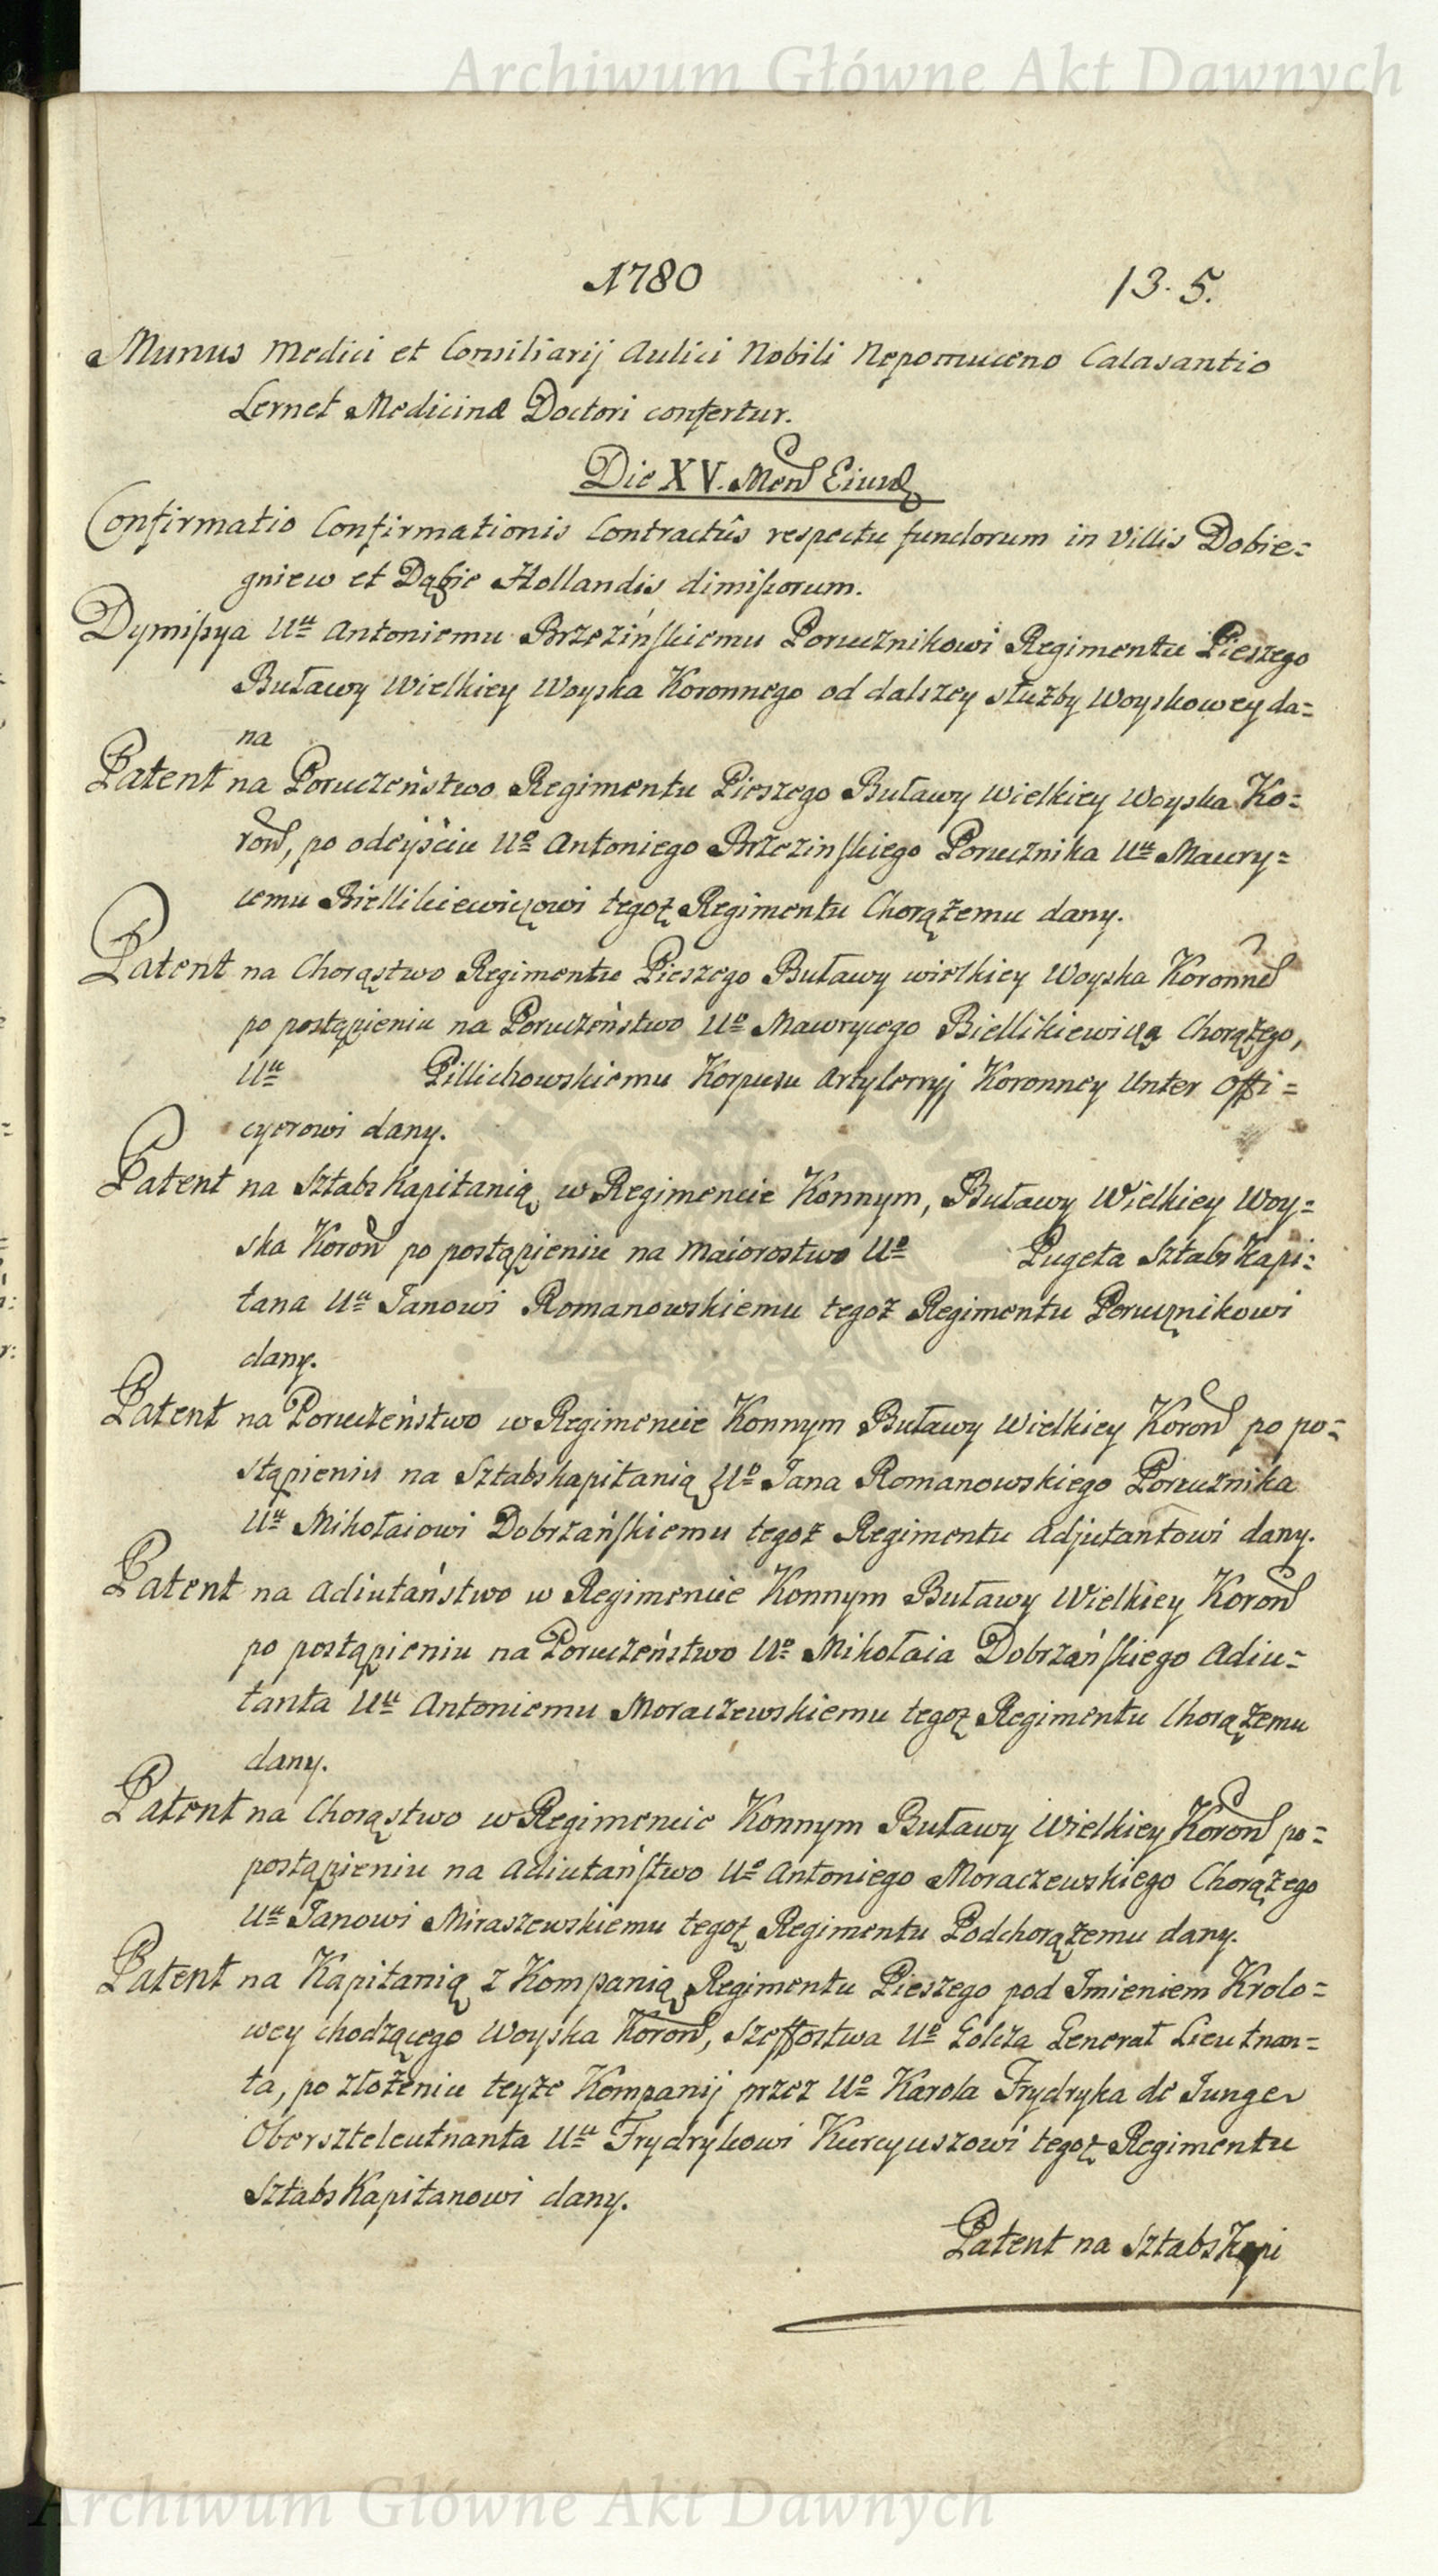 Archiwum Główne Akt Dawnych
1780
13. 5.
Munus Medici et Consiliarij Aulici Nobili Nepomuceno Calasantio
Lernet Medicinæ Doctori confertur.
Die XV. Men Eiusd
Confirmatio Confirmationis Contractûs respectu fundorum in Villis Dobie=
gniew et Dąbie Hollandis dimissorum.
Dymissya Uu Antoniemu Brzezińskiemu Porucznikowi Regimentu Pieszego
Buławy Wielkiey Woyska Koronnego od dalszey służby Woyskowey da=
na
Patent na Poruczeństwo Regimentu Pieszego Buławy Wielkiey Woyska Ko=
ron, po odeyściu Uo Antoniego Brzezinskiego Porucznika Uu Maury=
cemu Biellikiewiczowi tegoż Regimentu Chorążemu dany.
Patent na Chorąstwo Regimentu Pieszego Buławy wielkiey Woyska Koronne
po postąpieniu na Poruczeństwo Uo Maurycego Biellikiewicza Chorążego,
Uu Pillichowskiemu Korpusu Artyleryj Koronney Unter Offi=
cyerowi dany.
Patent na Sztabs Kapitanią w Regimencie Konnym, Buławy Wielkiey Woy=
ska Koron po postąpieniu na Maiorostwo Uo Pugeta Sztabs Kapi=
tana Uu Janowi Romanowskiemu tegoż Regimentu Porucznikowi
dany.
Patent na Poruczeństwo w Regimencie Konnym Buławy Wielkiey Koron po po=
stąpieniu na Sztabskapitanią Uo Jana Romanowskiego Porucznika
Uu Mikołaiowi Dobrzańskiemu tegoż Regimentu Adjutantowi dany.
Patent na Adiutaństwo w Regimencie Konnym Buławy Wielkiey Koron
po postąpieniu na Poruczeństwo Uo Mikołaia Dobrzańskiego Adiu=
tanta Uu Antoniemu Moraczewskiemu tegoż Regimentu Chorążemu
dany.
Patent na Chorąstwo w Regimencie Konnym Buławy Wielkiey Koron po=
postąpieniu na Adiutaństwo Uo Antoniego Moraczewskiego Chorążego
Uu Janowi Miraszewskiemu tegoż Regimentu Podchorążemu dany.
Patent na Kapitanią z Kompanią Regimentu Pieszego pod Imieniem Krolo=
wey chodzącego Woyska Koron, Szeffostwa Uo Golcza Generał Lieutnan=
ta, po złożeniu teyże Kompanij przez Uo Karola Frydryka de Junge
Oberszteleutnanta Uu Frydrykowi Kurcyuszowi tegoż Regimentu
Sztabs Kapitanowi dany.
Patent na Sztabs Kapi
Archiwum Główne Akt Dawnych